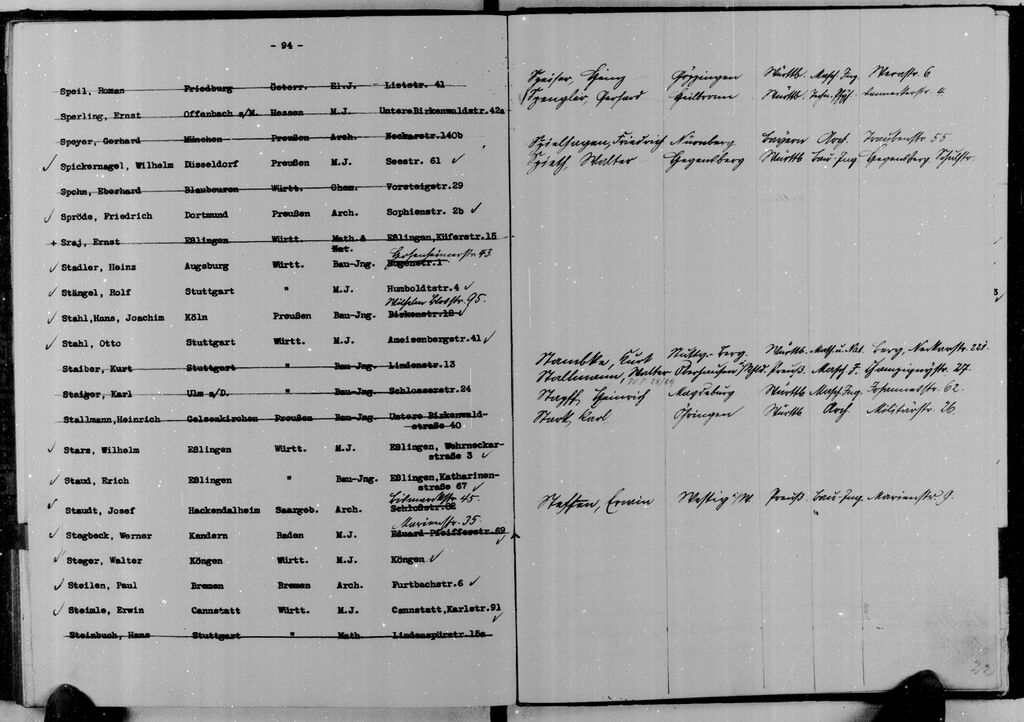 - 94 -
Speil, Roman Friedburg Österr. El.J. Liststr. 41
Sperling, Ernst Offenbach a/M. Hessen M.J. Untere Birkenwaldstr. 42a
Speyer, Gerhard München Preußen Arch. Neckarstr. 140b
✓ Spickernagel, Wilhelm Düsseldorf Preußen M.J. Seestr. 61 ✓
Spohn, Eberhard Blaubeuren Württ. Chem. Vorsteigstr. 29
✓ Spröde, Friedrich Dortmund Preußen Arch. Sophienstr. 2b ✓
+ Sraj, Ernst Eßlingen Württ. Math.& Eßlingen, Küferstr. 15
Nat.
Hohenheimerstr. 43
✓ Stadler, Heinz Augsburg Württ. Bau-Jng. Hugenstr. 1
✓ Stängel, Rolf Stuttgart " M.J. Humboldtstr. 4 ✓
Wilhelm Blosstr. 95.
✓ Stahl, Hans, Joachim Köln Preußen Bau-Jng. Birkenstr. 12
✓ Stahl, Otto Stuttgart Württ. M.J. Ameisenbergstr. 41 ✓
Staiber, Kurt Stuttgart " Bau-Jng. Lindenstr. 13
Staiger, Karl Ulm a/D. " Bau-Jng. Schlosserstr. 24
Stallmann, Heinrich Gelsenkirchen Preußen Bau-Jng. Untere Birkenwald-
straße 40
✓ Starz, Wilhelm Eßlingen Württ. M.J. Eßlingen, Wehrneckar-
straße 3 ✓
✓ Staud, Erich Eßlingen " Bau-Jng. Eßlingen, Katharinen-
straße 67 ✓
Bismarckstr. 45.
✓ Staudt, Josef Hackendalheim Saargeb. Arch. Schloßstr. 82
Marienstr. 35.
✓ Stegbeck, Werner Kandern Baden M.J. Eduard-Pfeifferstr. 69
✓ Steger, Walter Köngen Württ. M.J. Köngen ✓
✓ Steilen, Paul Bremen Bremen Arch. Furtbachstr. 6 ✓
✓ Steimle, Erwin Cannstatt Württ. M.J. Cannstatt, Karlstr. 91 ✓
Steinbuch, Hans Stuttgart " Math. Lindenspürstr. 15a
Speiser, Göppingen Württb. Masch. Ing. Werastr. 6
Spengler, Gerhard Heilbronn Württb. Danneckerstr. 4
Spielhagen, Friedrich Nürnberg Bayern Arch. Traubenstr. 55
Spieth, Walter Hegensberg Württb Bau-Ing Hegensberg Schulstr.
Stambke, Kurt Stuttg.-Berg. Württb. Math.u.Nat. Berg, Neckarstr. 221.
Stallmann, Walter Oberhausen/Rhld. Preuß. Masch I. 27.
Stapff, Heinrich Magdeburg Württb Masch. Ing. Johannesstr. 62.
Stark, Karl Württb Arch. Militärstr. 26
Steffen, Erwin i/W. Preuß. Bau-Ing. Marienstr. 9.
3
22